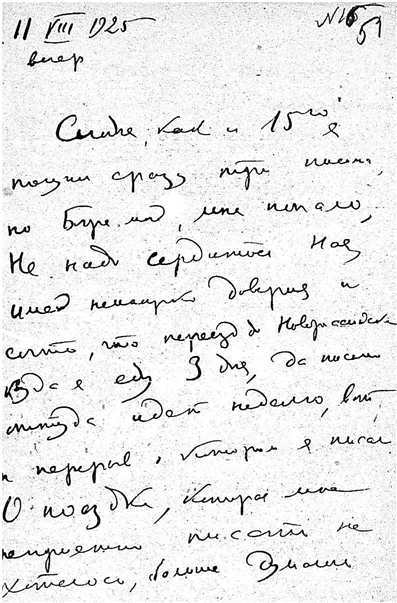 11 VIII 1925
вечер
№ 15
51
как и 15го я
получил сразу три письма,
но Боже мой, мне попало,
Не надо сердиться Надо
имей немножко доверия и
что переезд до Новороссийска
куда я еду 3 дня, да письмо
оттуда идет неделю, вот
и перерыв о котором я писал
О поездке, которая мне
неприятна писать не
хотелось, больше